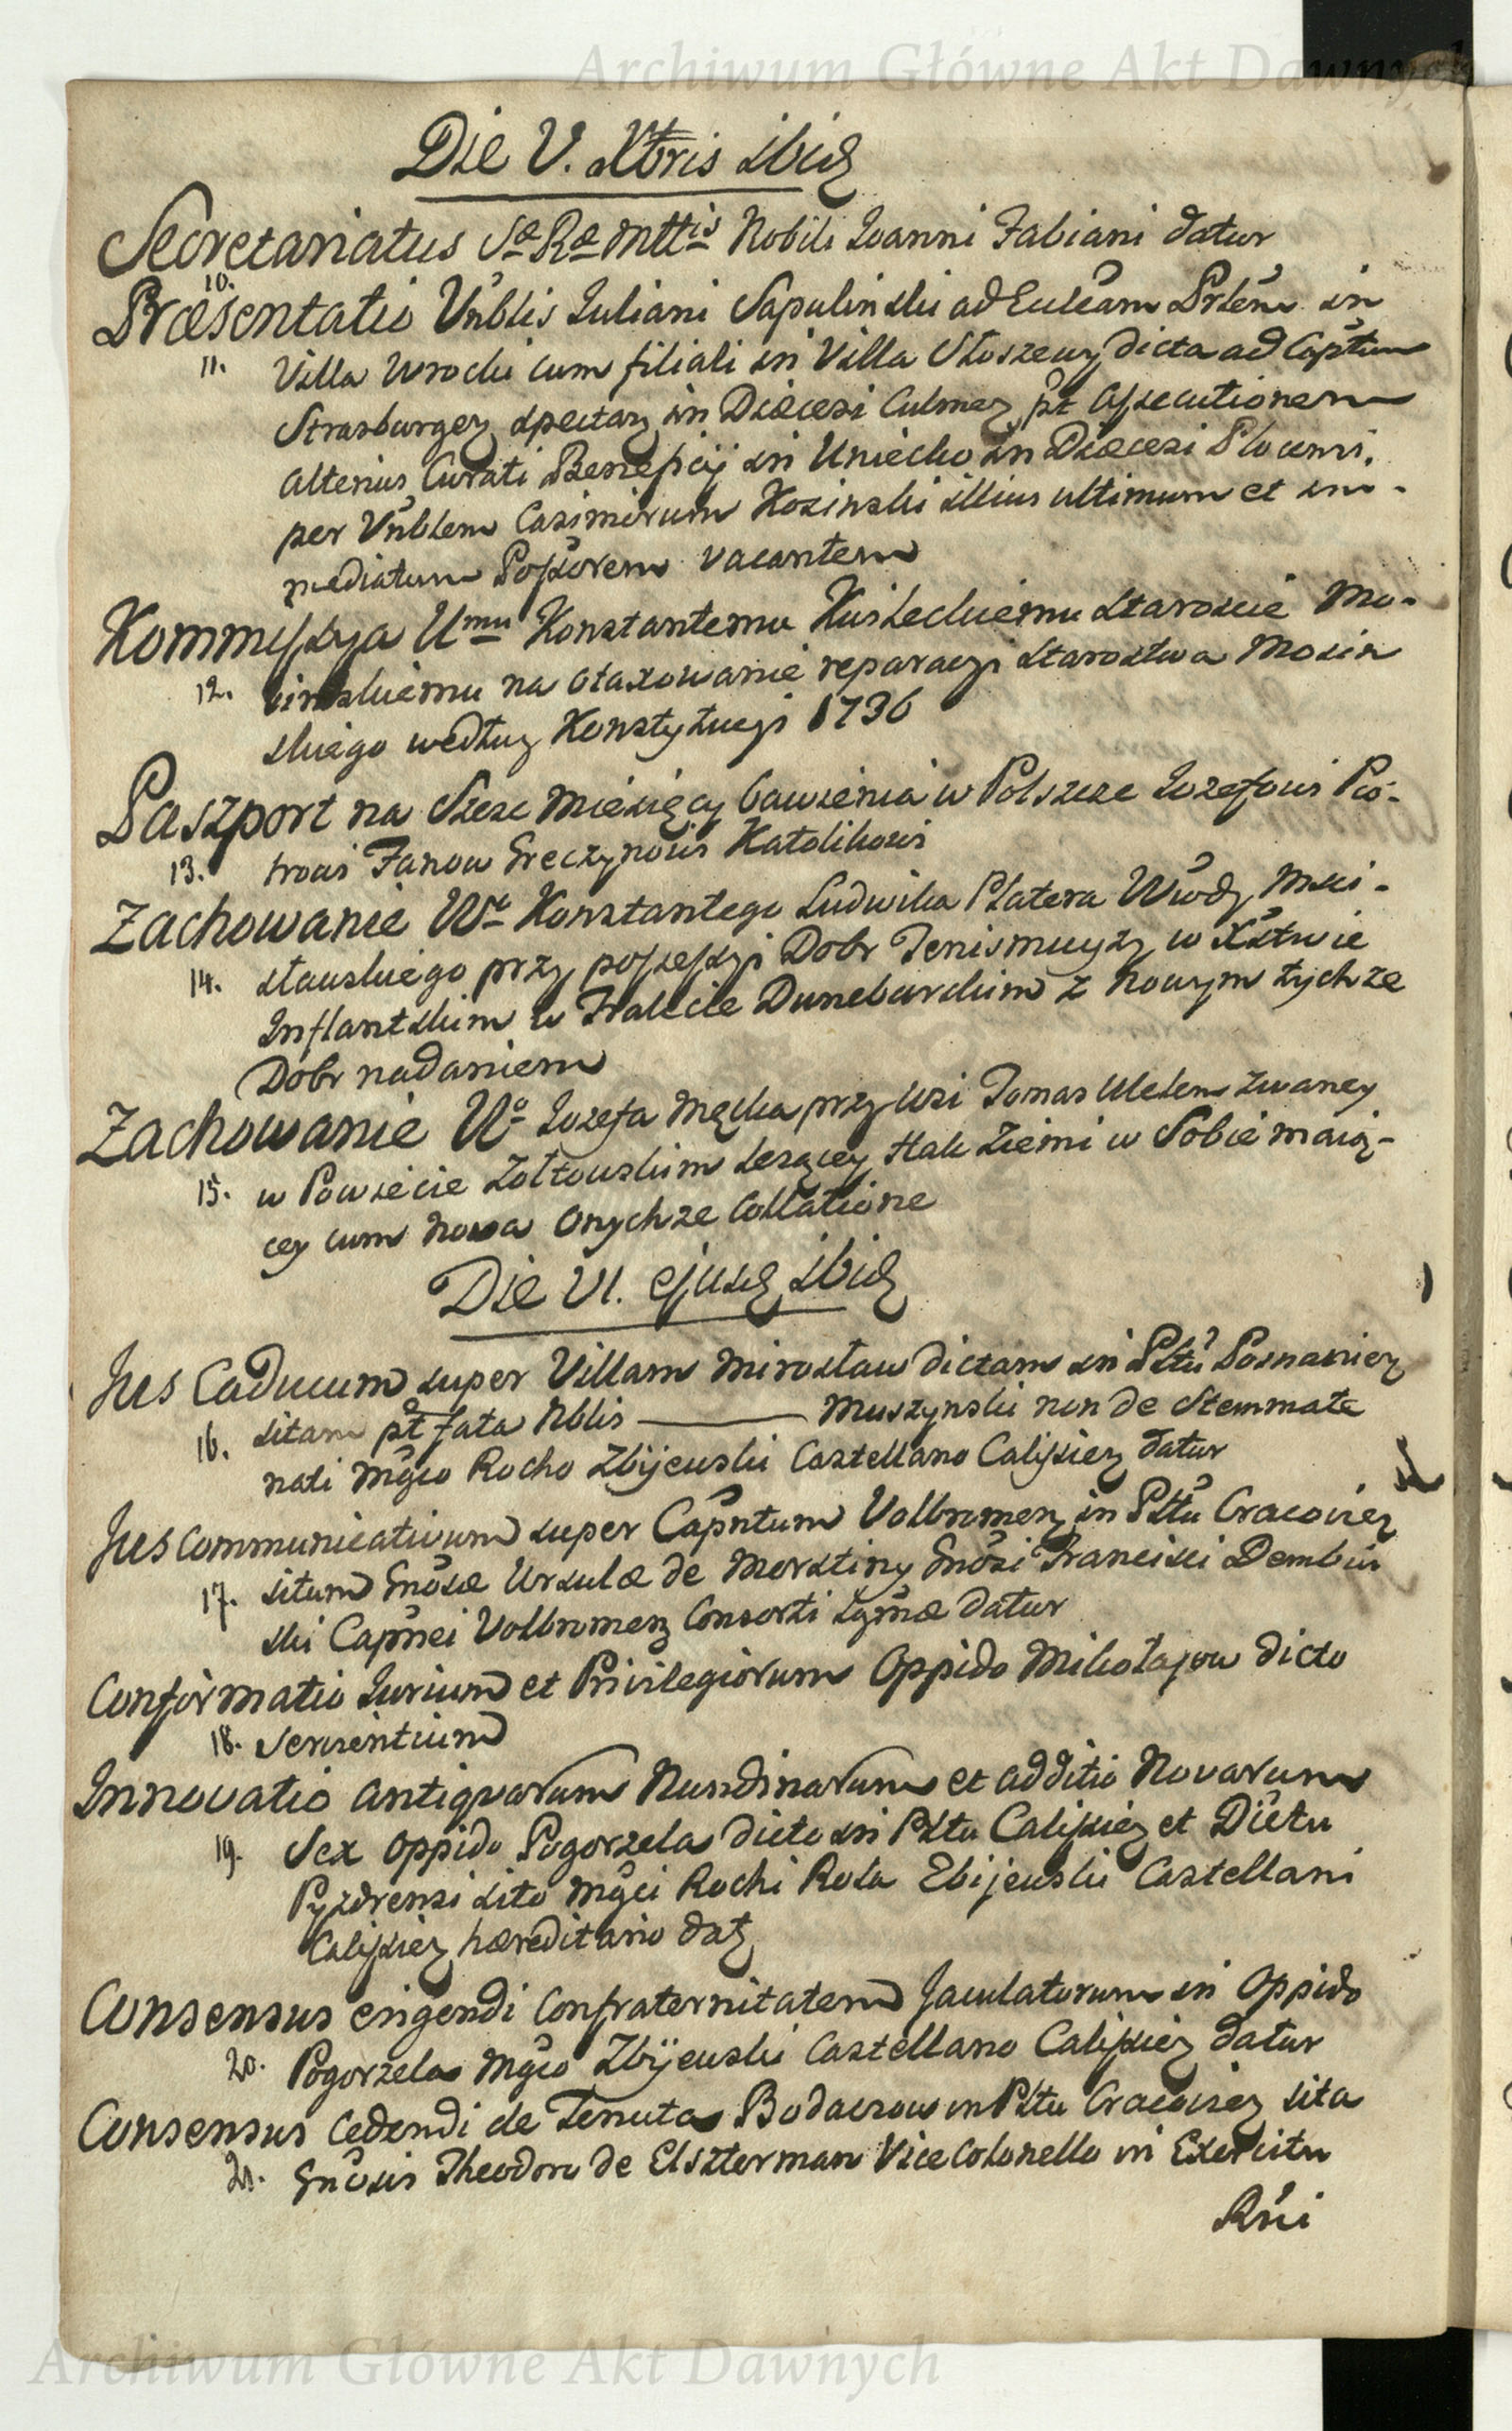 Archiwum Główne Akt Dawnych
Die V. Xbris ibid
Secretariatus Sæ Ræ Mttis Nobili Joanni Fabiani datur
10.
Præsentatio Vnblis Juliani Sapulinski ad Ecclam Prlem in
11. Villa Wrocki cum filiali in Villa Słoszewy dicta ad Captum
Strasburgen spectan in Diæcesi Culmen pt assecutionem
alterius Curati Beneficij in Uniecko in Diæcesi Plocensi.
per Vnblem Casimirum Kosinski illius ultimum et im-
mediatum Possorem vacantem
Kommissya Umu Konstantemu Kusleckiemu Staroscie Mo-
12. sinskiemu na otaxowanie reparacyi Starostwa Mosin
skiego według Konstytucyi 1736
Paszport na Szesc Miesięcy bawienia w Polszcze Jozefowi Pio-
13. trowi Fanow Greczynowi Katolikowi
Zachowanie We Konstantego Ludwika Platera Wwody Msci-
14. sławskiego przy possessyi Dobr Tenismuyzy w Xstwie
Inflantskim w Trakcie Duneburskim z nowym tychże
Dobr nadaniem
Zachowanie Uo Jozefa Męcka przy Wsi Tomas Ulelem zwaney
15. w Powiecie Zołtowskim leżącey Hak Ziemi w Sobie maią-
cey cum nova Onychze Collatione
Die VI. ejusd ibid
Jus Caducum super Villam Mirosław dictam in Pttu Posnanien
16. sitam pt fata Nblis ——— Muszynski non de Stemmate
nati Mgco Rocho Zbijewski Castellano Calissien datur
Jus communicativum super Capntum Volbromen in Pttu Cracovien
17. situm Gnosæ Ursulæ de Morstiny Gnosi Francisci Dembin
ski Capnei Volbromen Consorti Lgmæ datur
Confirmatio Jurium et Privilegiorum Oppido Mikołajow dicto
18. Servientium
Innovatio antiquarum Nundinarum et additio Novarum
19. Sex Oppido Pogorzela dicto in Pttu Calissien et Dictu
Pyzdrensi sito Mgci Rochi Rola Zbijewski Castellani
Calissien hæreditario dat
Consensus erigendi Confraternitatem Jaculatorum in Oppido
20. Pogorzela Mgco Zbijewski Castellano Calissien datur
Consensus cedendi de Tenuta Bodaczow in Pttu Cracovien sita
21. Gnosis Theodoro de Elszterman Vice Colonello in Exercitu
Rni
Archiwum Główne Akt Dawnych